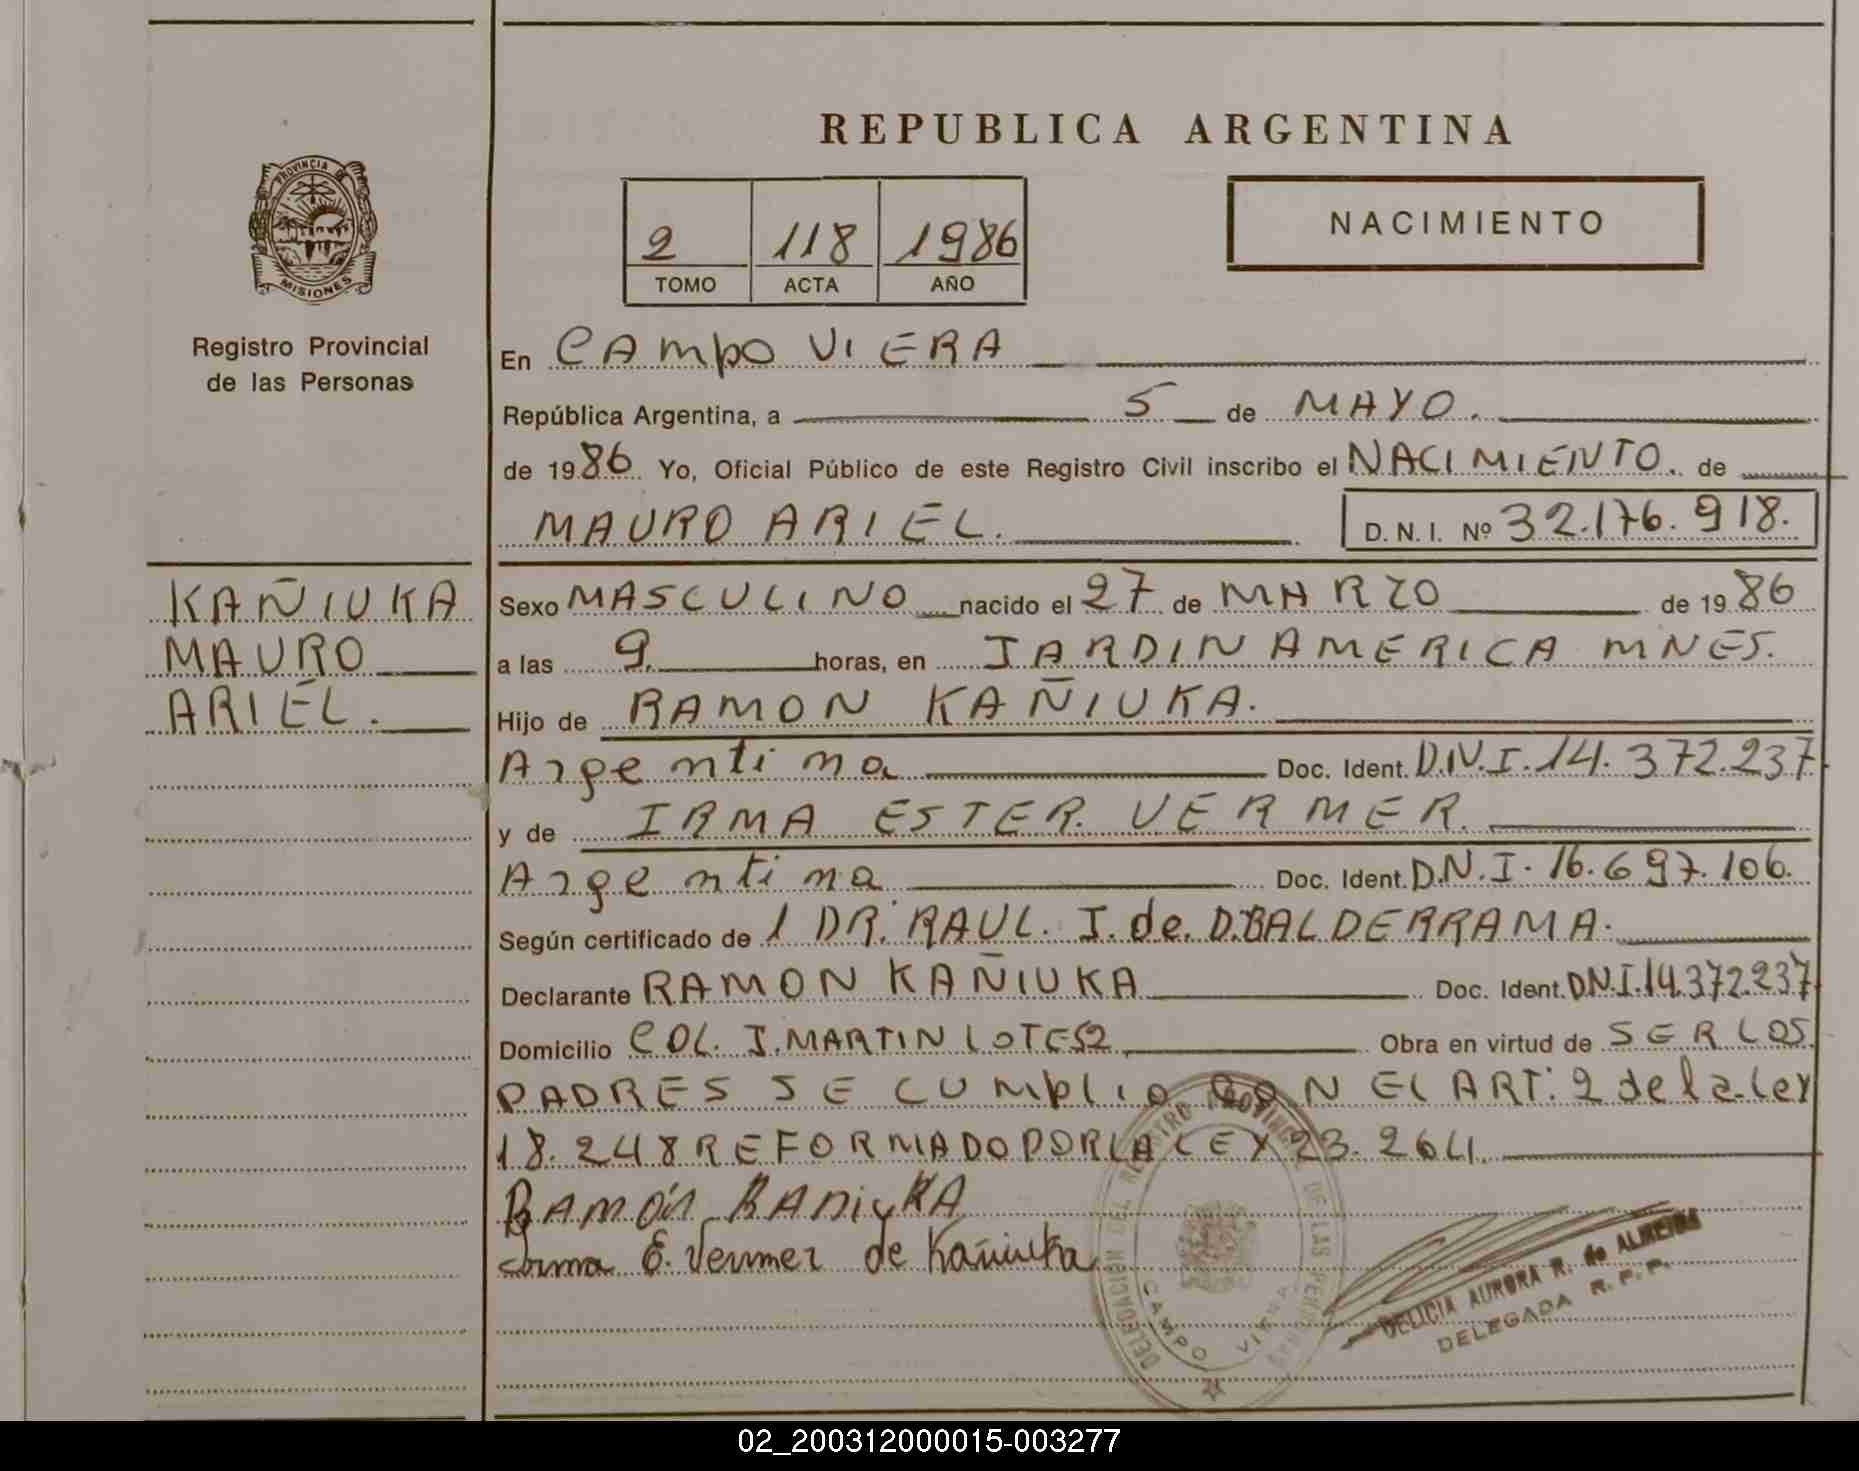 REPUBLICA ARGENTINA
NACIMIENTO
2 118 1986
TOMO ACTA AÑO
PROVINCIA DE
MISIONES
Registro Provincial
de las Personas
KAÑIUKA
MAURO
ARIEL.
En CAMPO VIERA
República Argentina, a 5 de MAYO.
de 1986 Yo, Oficial Público de este Registro Civil inscribo el NACIMIENTO. de
MAURO ARIEL. D. N. I. Nº 32.176.918.
Sexo MASCULINO nacido el 27 de MARZO de 1986
a las 9. horas, en JARDIN AMERICA MNES.
Hijo de RAMON KAÑIUKA.
Argentina Doc. Ident. D.N.I. 14.372.237
y de IRMA ESTER. VERMER.
Argentina Doc. Ident. D.N.I. 16.697.106.
Según certificado de 1 DR. RAUL. I. de. D.BALDERRAMA.
Declarante RAMON KAÑIUKA Doc. Ident. DN.I.14.372.237
Domicilio COL. J. MARTIN LOTE52 Obra en virtud de SER LOS
PADRES SE CUMPLIO CON EL ART. 2 de la Ley
18.248 REFORMADO POR LA LEY 23.264.
RAMÓN KAÑIUKA
Irma E. Vermer de Kañiuka
DELEGACION DEL REGISTRO PROVINCIAL DE LAS PERSONAS
CAMPO VIERA
DELICIA AURORA R. de ALMEIDA
DELEGADA R. P. P.
02_200312000015-003277